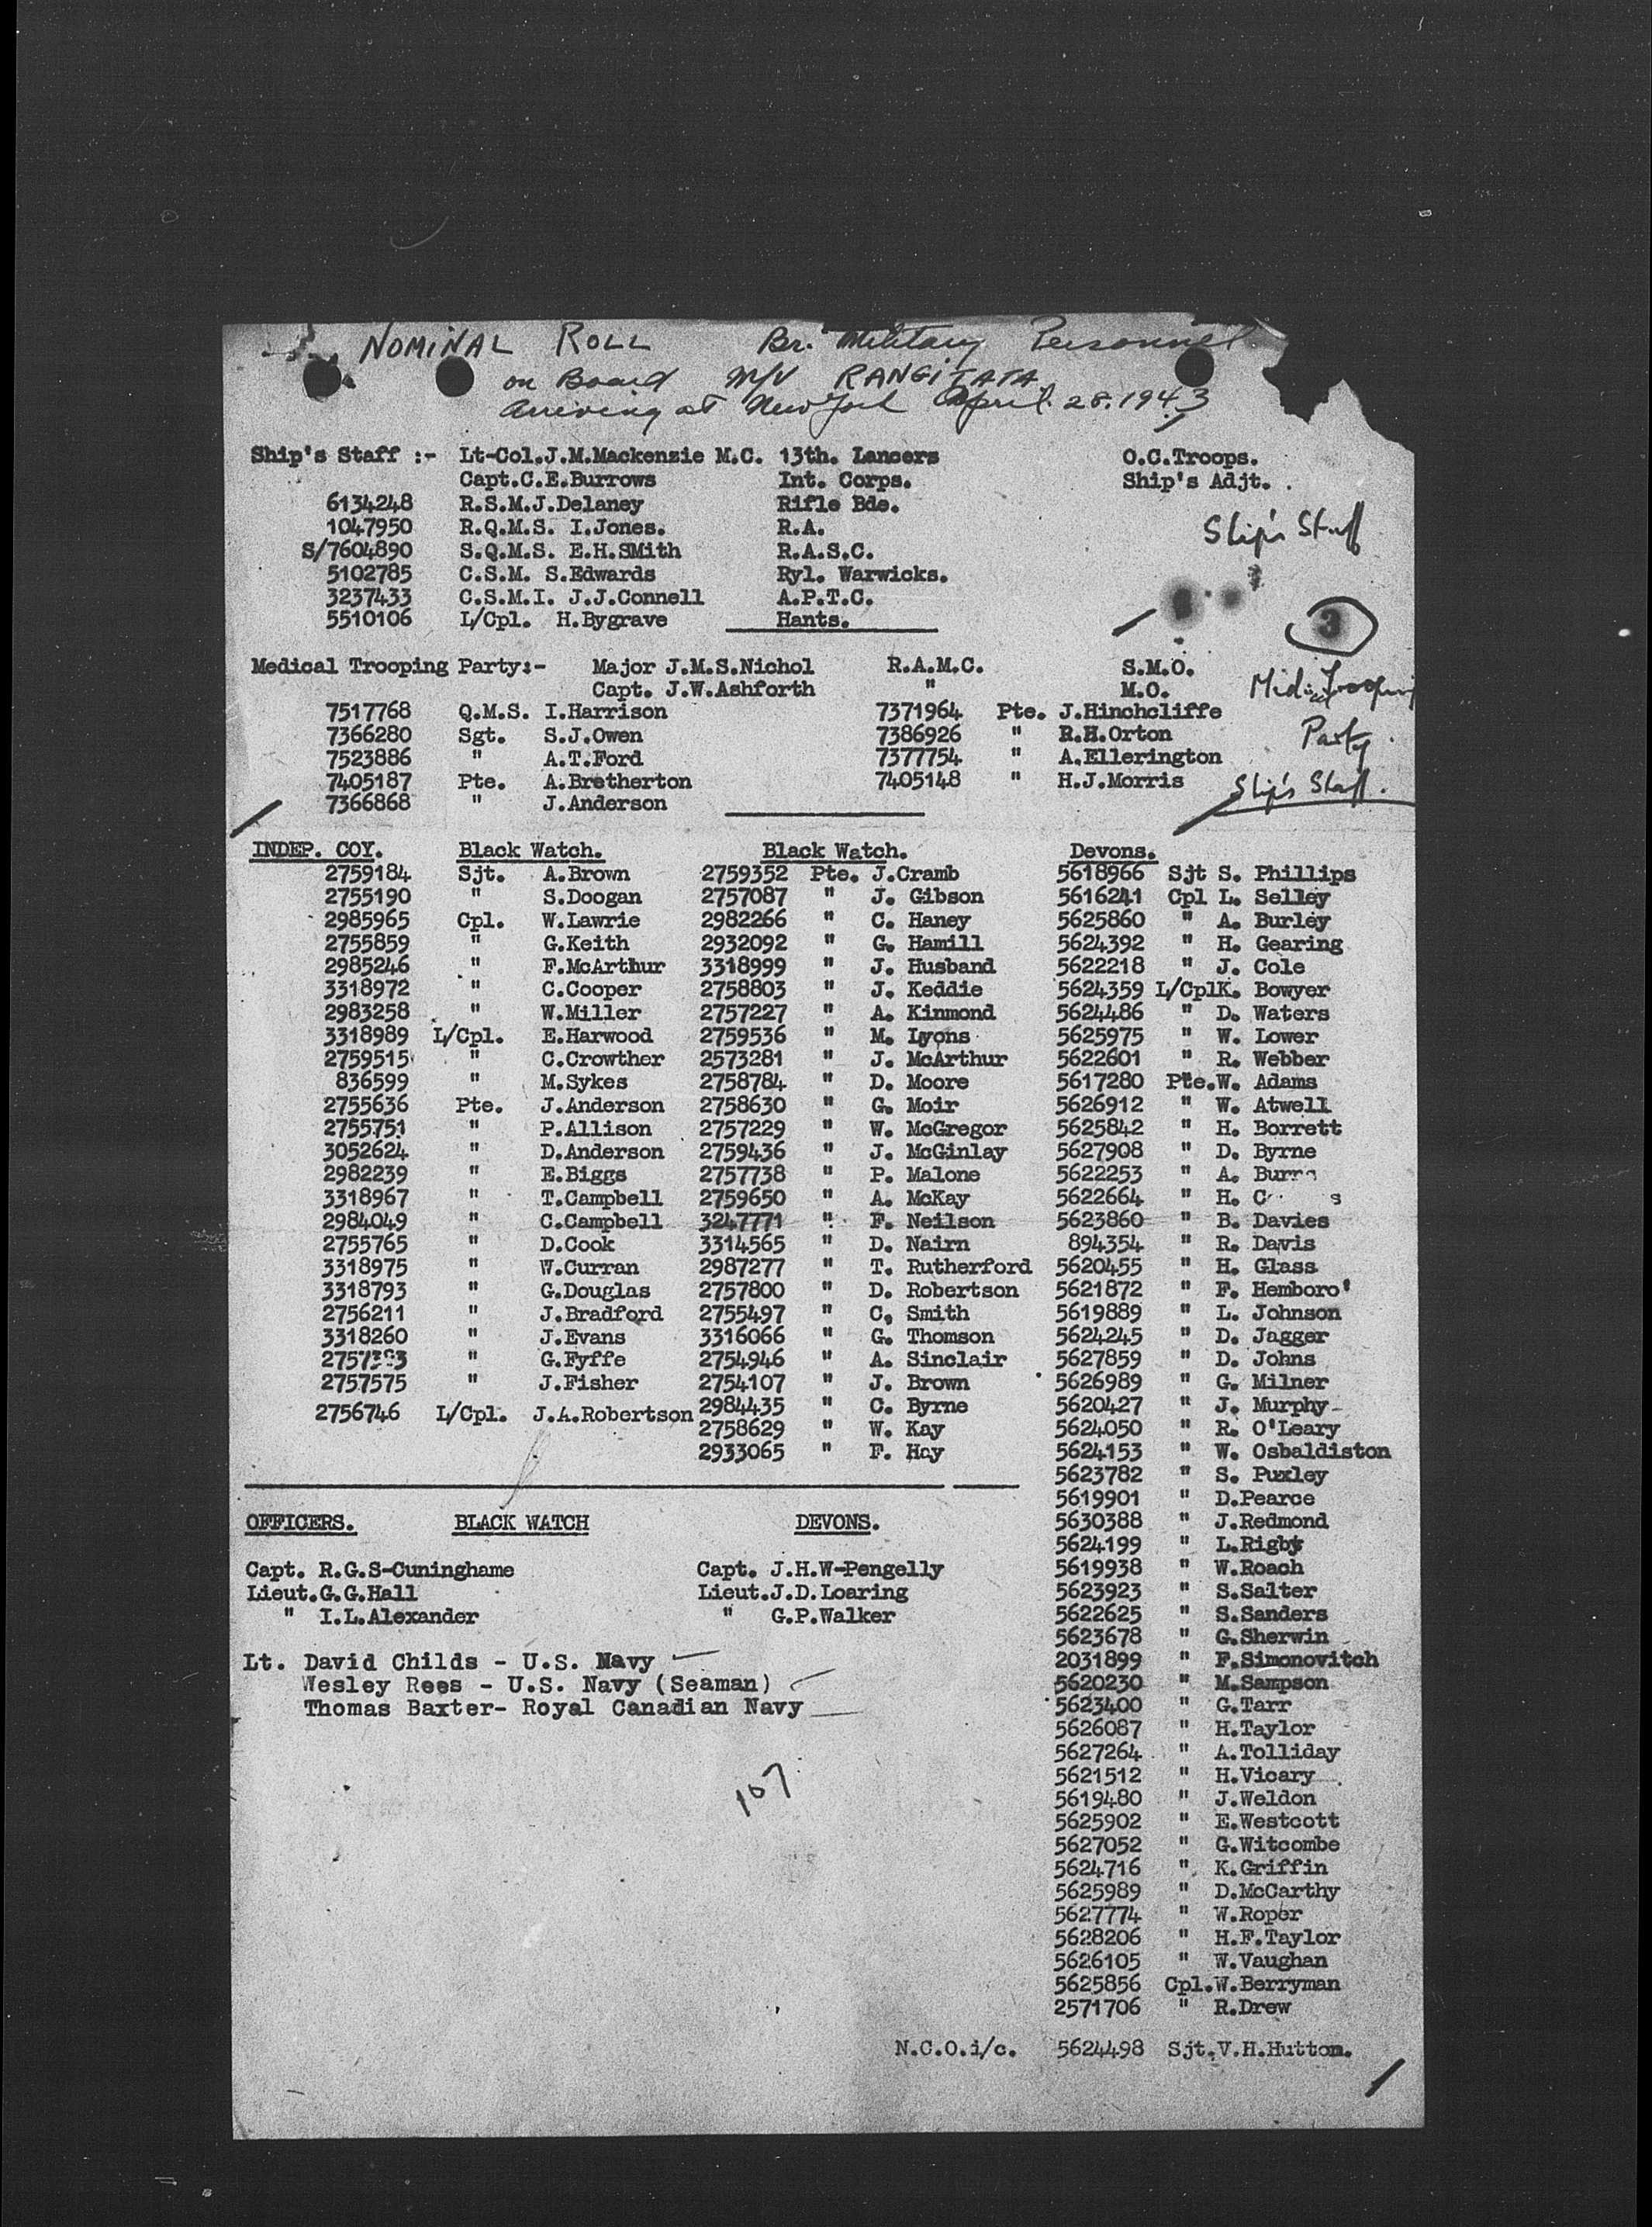 NOMINAL ROLL Br. Military Personnel
on Board M/V RANGITATA
Arriving at New York April 28. 1943
Ship's Staff :- Lt-Col.J.M.Mackenzie M.C. 13th. Lancers O.C.Troops.
Capt.C.E.Burrows Int. Corps. Ship's Adjt.
6134248 R.S.M.J.Delaney Rifle Bde.
1047950 R.Q.M.S. I.Jones. R.A.
Ship's Staff
S/7604890 S.Q.M.S. E.H.SMith R.A.S.C.
5102785 C.S.M. S.Edwards Ryl. Warwicks.
3237433 C.S.M.I. J.J.Connell A.P.T.C.
5510106 L/Cpl. H.Bygrave Hants.
3
Medical Trooping Party:- Major J.M.S.Nichol R.A.M.C. S.M.O.
Capt. J.W.Ashforth " M.O.
Trooping
7517768 Q.M.S. I.Harrison 7371964 Pte. J.Hinchcliffe
7366280 Sgt. S.J.Owen 7386926 " R.H.Orton
Party
7523886 " A.T.Ford 7377754 " A.Ellerington
7405187 Pte. A.Bretherton 7405148 " H.J.Morris
Ship's Staff.
7366868 " J.Anderson
INDEP. COY. Black Watch. Black Watch. Devons.
2759184 Sjt. A.Brown 2759352 Pte. J.Cramb 5618966 Sjt S. Phillips
2755190 " S.Doogan 2757087 " J. Gibson 5616241 Cpl L. Selley
2985965 Cpl. W.Lawrie 2982266 " C. Haney 5625860 " A. Burley
2755859 " G.Keith 2932092 " G. Hamill 5624392 " H. Gearing
2985246 " F.McArthur 3318999 " J. Husband 5622218 " J. Cole
3318972 " C.Cooper 2758803 " J. Keddie 5624359 L/CplK. Bowyer
2983258 " W.Miller 2757227 " A. Kinmond 5624486 " D. Waters
3318989 L/Cpl. E.Harwood 2759536 " M. Lyons 5625975 " W. Lower
2759515 " C.Crowther 2573281 " J. McArthur 5622601 " R. Webber
836599 " M.Sykes 2758784 " D. Moore 5617280 Pte.W. Adams
2755636 Pte. J.Anderson 2758630 " G. Moir 5626912 " W. Atwell
2755751 " P.Allison 2757229 " W. McGregor 5625842 " H. Borrett
3052624 " D.Anderson 2759436 " J. McGinlay 5627908 " D. Byrne
2982239 " E.Biggs 2757738 " P. Malone 5622253 " A.
3318967 " T.Campbell 2759650 " A. McKay 5622664 " H.
2984049 " C.Campbell 3247771 " F. Neilson 5623860 " B. Davies
2755765 " D.Cook 3314565 " D. Nairn 894354 " R. Davis
3318975 " W.Curran 2987277 " T. Rutherford 5620455 " H. Glass
3318793 " G.Douglas 2757800 " D. Robertson 5621872 " F. Hemboro'
2756211 " J.Bradford 2755497 " C, Smith 5619889 " L. Johnson
3318260 " J.Evans 3316066 " G. Thomson 5624245 " D. Jagger
" G.Fyffe 2754946 " A. Sinclair 5627859 " D. Johns
2757575 " J.Fisher 2754107 " J. Brown 5626989 " G. Milner
2756746 L/Cpl. J.A.Robertson 2984435 " C. Byrne 5620427 " J. Murphy
2758629 " W. Kay 5624050 " R. O'Leary
2933065 " F. Hay 5624153 " W. Osbaldiston
5623782 " S. Puxley
5619901 " D.Pearce
OFFICERS. BLACK WATCH DEVONS. 5630388 " J.Redmond
5624199 " L.Rigby
Capt. R.G.S-Cuninghame Capt. J.H.W-Pengelly 5619938 " W.Roach
Lieut.G.G.Hall Lieut.J.D.Loaring 5623923 " S.Salter
" I.L.Alexander " G.P.Walker 5622625 " S.Sanders
5623678 " G.Sherwin
Lt. David Childs - U.S. Navy 2031899 " F.Simonovitch
Wesley Rees - U.S. Navy (Seaman) 5620230 " M.Sampson
Thomas Baxter- Royal Canadian Navy 5623400 " G.Tarr
5626087 " H.Taylor
5627264 " A.Tolliday
107 5621512 " H.Vicary
5619480 " J.Weldon
5625902 " E.Westcott
5627052 " G.Witcombe
5624716 " K.Griffin
5625989 " D.McCarthy
5627774 " W.Roper
5628206 " H.F.Taylor
5626105 " W.Vaughan
5625856 Cpl.W.Berryman
2571706 " R.Drew
N.C.O.i/c. 5624498 Sjt.V.H.Hutton.